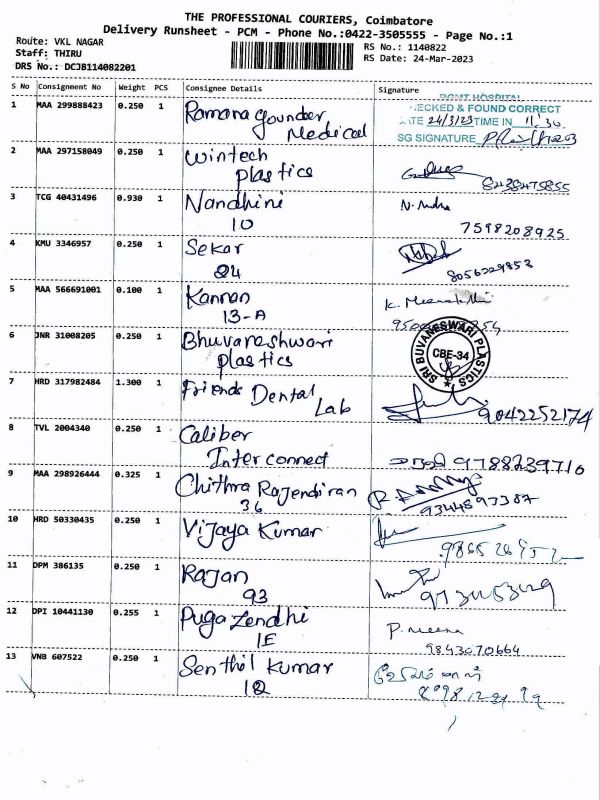 THE PROFESSIONAL COURIERS, Coimbatore
Delivery Runsheet - PCM - Phone No.:0422-3505555 - Page No.:1
Route: VKL NAGAR
Staff: THIRU
DRS No.: DCJB114082201
RS No.: 1140822
RS Date: 24-Mar-2023
S No Consignment No Weight PCS Consignee Details Signature
HOSPITAL
CHECKED & FOUND CORRECT
DATE 24/3/23 TIME IN 11:30
SG SIGNATURE
1 MAA 299888423 0.250 1 Ramana gounder
Medical
2 MAA 297158049 0.250 1 Wintech
plastics
8438475855
3 TCG 40431496 0.930 1 Nandhini
10
7598208925
4 KMU 3346957 0.250 1 Sekar
84
8056229853
5 MAA 566691001 0.100 1 Kannan
13-A
6 JNR 31008205 0.250 1 Bhuvaneshwari
plastics
SRI BUVANESWARI PLASTICS
CBE-34
7 HRD 317982484 1.300 1 Friends Dental
Lab
9042252174
8 TVL 2004340 0.250 1 Caliber
Interconnect
9788239710
9 MAA 298926444 0.325 1 Chithra Rajendiran
36
9344897387
10 HRD 50330435 0.250 1 Vijaya Kumar
11 DPM 386135 0.250 1 Rajan
93
12 DPI 10441130 0.255 1 Pugazendhi
1E
P. Meena
9843070664
13 VNB 607522 0.250 1 Senthil Kumar
12